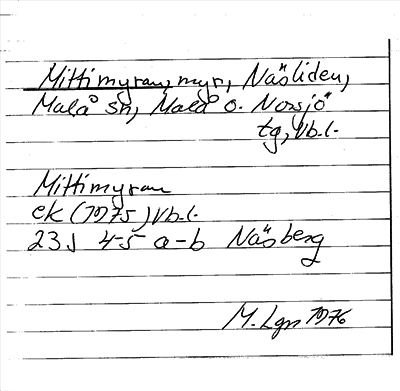 Mittimyran, myr, Näsliden,
Malå sn, Malå o. Norsjö
tg, Vb.l.
Mittimyran
ek (1975) Vb.l.
23J 4-5 a-b Näsberg
M. Lgn 1976